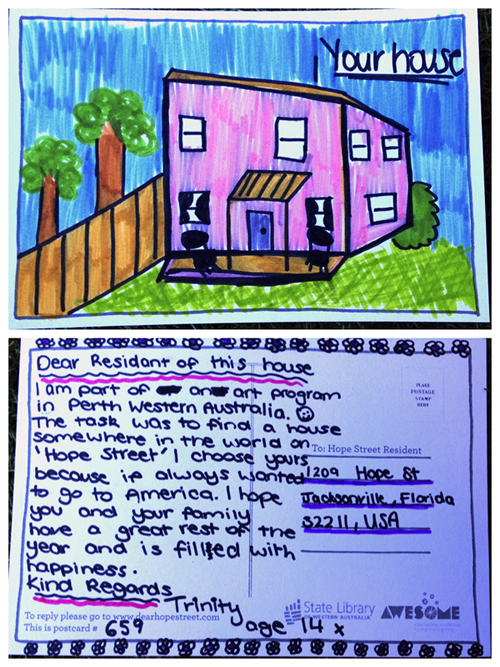 Your house
Dear Residant of this house
I am part of an art program
in Perth Western Australia. ☺
The task was to find a house
somewhere in the world on
'Hope Street' I choose yours
because ie always wanted
to go to America. I hope
you and your family
have a great rest of the
year and is filled with
happiness.
Kind Regards
Trinity
age 14 x
PLACE
POSTAGE
STAMP
HERE
To: Hope Street Resident
1209 Hope St
Jacksonville, Florida
32211, USA
To reply please go to www.dearhopestreet.com
This is postcard # 659
State Library
OF WESTERN AUSTRALIA
AWESOME